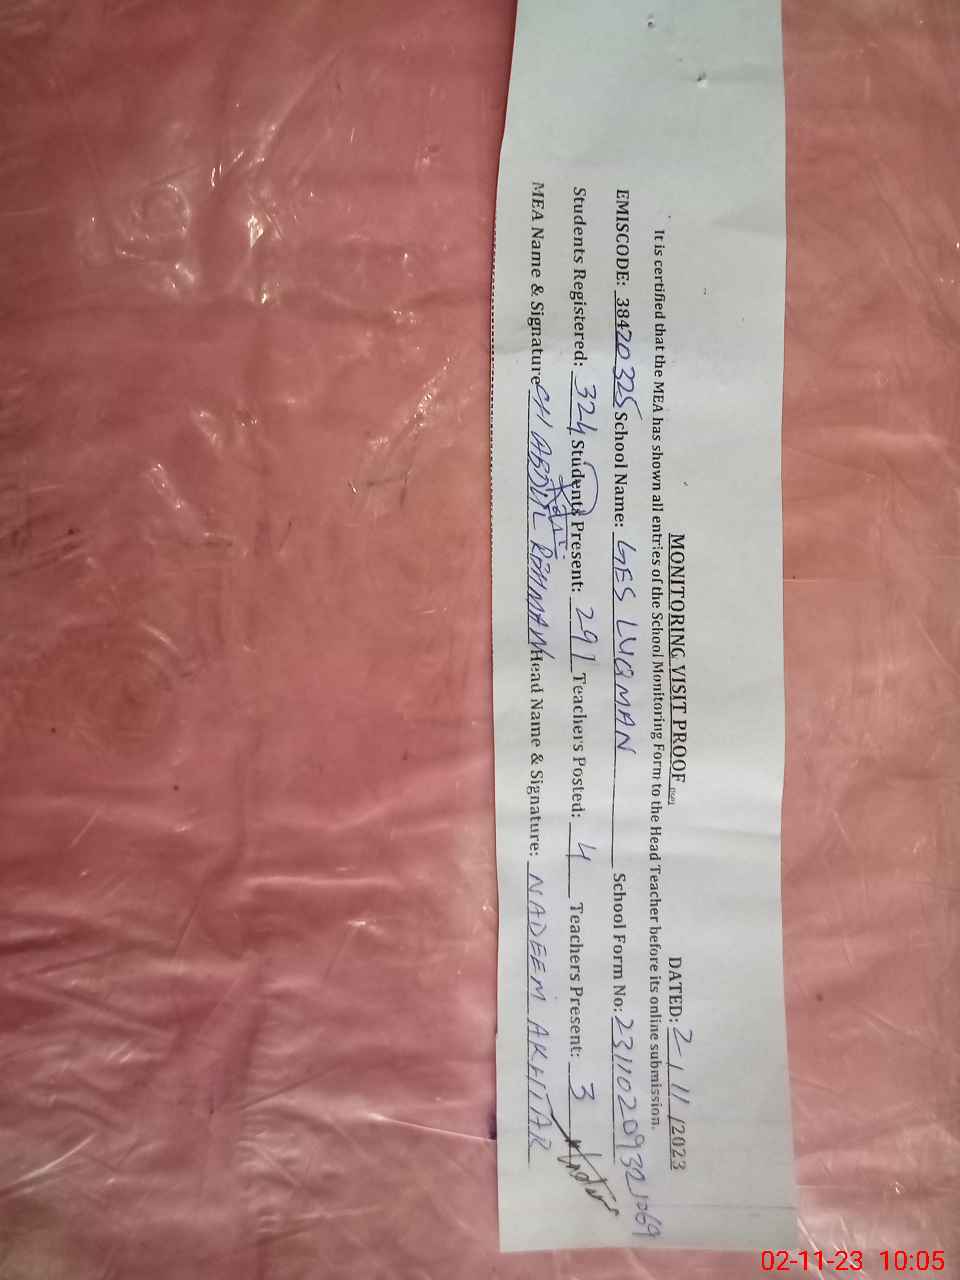 MONITORING VISIT PROOF
DATED: 2/11/2023
It is certified that the MEA has shown all entries of the School Monitoring Form to the Head Teacher before its online submission.
EMISCODE: 38420325 School Name: GES LUQMAN School Form No: 23110209321069
Students Registered: 324 Students Present: 291 Teachers Posted: 4 Teachers Present: 3
MEA Name & Signature CH ABDUL REHMAN Head Name & Signature: NADEEM AKHTAR
02-11-23 10:05